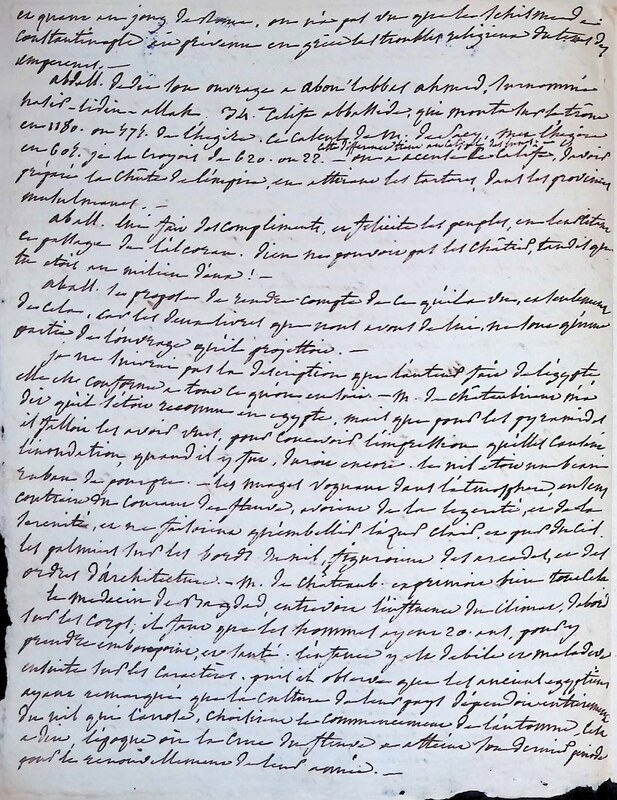 et quant au joug de Rome, on n'a pas vu que le schisme de
Constantinople ait prévenu en grèce les troubles religieux du tems des
empereurs. —
abdall. dedie son ouvrage a abou'labbas ahmed, surnommé
nasir-lidin-allah. 34. Calife abbasside, qui monta sur le trône
en 1180. ou 575. de l'hegire. ce calcul de M. de Sacy, met l'hegire
en 605. je la croyois de 620. ou 22. — on a accusé ce Calife, d'avoir
préparé la chûte de l'empire, en attirant les tartares, dans les provinces
musulmanes. —
abdall. lui fait des compliments, et felicite les peuples, en leur citant
ce passage de l'alcoran. dieu ne pouvoit pas les châtier, tandis que
tu étois au milieu d'eux! —
abdall. se propose de rendre compte de ce qu'il a vu, et seulement
de cela, car les deux livres que nous avons de lui, ne sont qu'une
partie de l'ouvrage qu'il projettoit. —
je ne suivrai pas la description que l'auteur fait de l'égypte,
elle est conforme a tout ce qu'on en sait. — M. de chateaubriand m'a
dit qu'il s'étoit reconnu en egypte, mais que pour les pyramides
il falloit les avoir vues, pour concevoir l'impression qu'elles causent
l'inondation, quand il y fut, duroit encore. le nil étoit un beau
ruban de pourpre. — les nuages voguant dans l'atmosphère, en sens
contraire du courant du fleuve, avoient de la legereté, et de la
serenité, et ne faisoient qu'embellir l'azur clair, et pur du ciel.
les palmiers sur les bords du nil, figuroient des arcades, et des
ordres d'architecture. — M. de châteaub. exprimoit bien tout cela
le medecin de Bagdad, entrevoit l'influence du climat, d'abord
sur les corps, il faut que les hommes ayent 20. ans, pour y
prendre embonpoint, et santé. l'enfance y est debile et maladive
ensuite sur les caractères. puis il observe que les anciens egyptiens
ayant remarqué que la culture de leur pays dépendoit entierement
du nil qui l'arrose, choisirent le commencement de l'automne, c'est
a dire l'époque où la crue du fleuve a atteint son dernier periode
pour le renouvellement de leur année. —